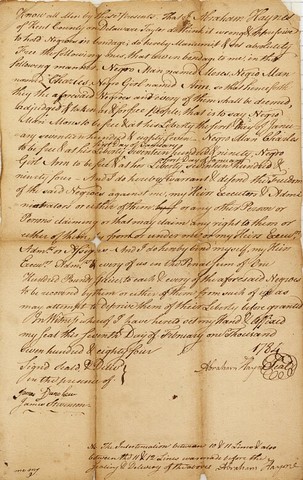 Know all Men by these Presents that I Abraham Haynes
of Kent County on Delaware Taylor think it wrong & oppressive
to hold Negroes in bondage, do hereby Manumit & in absolutely
Free the following ones that I own bondage to me in the
following manner. Negro Man named Moses, Negro Man
named Charles Negro Girl named Ann, so that henceforth
they the aforesaid Negroes and every of them shall be deemed,
adjudged & taken as free People, that is to say Negro
Moses to be free & at his Liberty the first Day of
seventeen hundred & Negro Man Charles
first Day of February
to be free & at his Liberty Seventeen hundred & Negro
first Day of
Girl Ann to be free & at her Seventeen hundred &
ninety four And I do hereby Warrant & defend the Freedom
of the said Negroes against me, my Heirs Executors & Admi-
nistrators or either of them or any other Person or
Persons claiming or that may claim any right to them or
either of them by from or under me or my Heirs Execrs.
Admrs. or Assigns And I do hereby bind myself, my Heirs
Execrs. Admrs. & every of us in the Penal sum of One
Hundred Pounds to each & every of the aforesaid Negroes
to be recovered by them or either of them from such of us as
may attempt to deprive them of their Liberty before granted
In Witness whereof I have hereunto set my Hand & affixed
my Seal this seventh Day of February one Thousand
seven hundred & eighty four
1784
Signed Seald. & Delivd.
in the presence of
Abraham Haynes Seal
James Stevenson
NB The Interlineation between 10 & 11 Lines & also
between the 11 & 12 Lines was made before the
Sealing & Delivery of the above Abraham Haynes